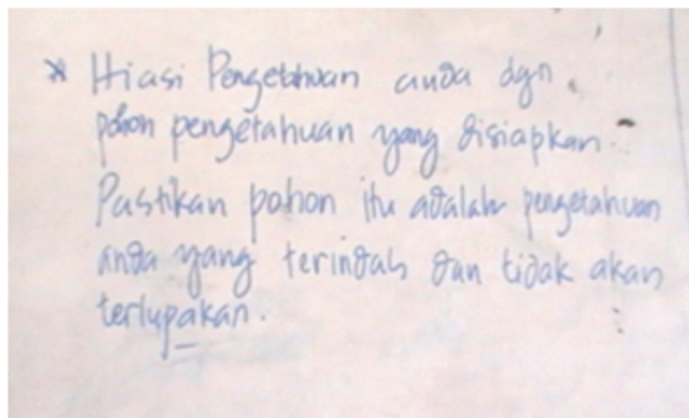 * Hiasi Pengetahuan anda dgn
pohon pengetahuan yang disiapkan.
Pastikan pohon itu adalah pengetahuan
anda yang terindah dan tidak akan
terlupakan.